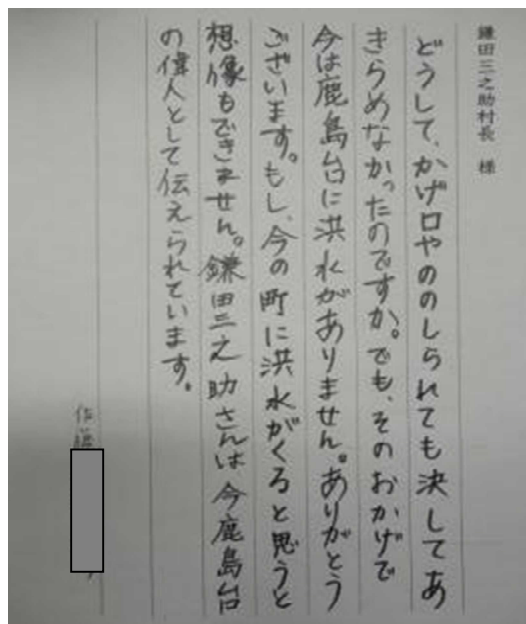 鎌田三之助村長 様
どうして、かげ口やののしられても決してあ
きらめなかったのですか。でも、そのおかげで
今は鹿島台に洪水がありません。ありがとう
ございます。もし、今の町に洪水がくると思うと
想像もできません。鎌田三之助さんは今鹿島台
の偉人として伝えられています。